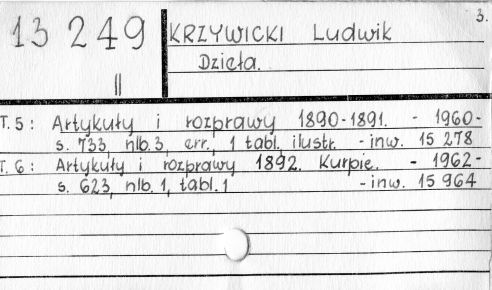 3.
13 249
KRZYWICKI Ludwik
Dzieła.
||
T. 5: Artykuły i rozprawy 1890-1891. - 1960-
s. 733, nlb. 3, err., 1 tabl. ilustr. - inw. 15 278
T. 6: Artykuły i rozprawy 1892. Kurpie. - 1962-
s. 623, nlb. 1, tabl. 1 - inw. 15 964